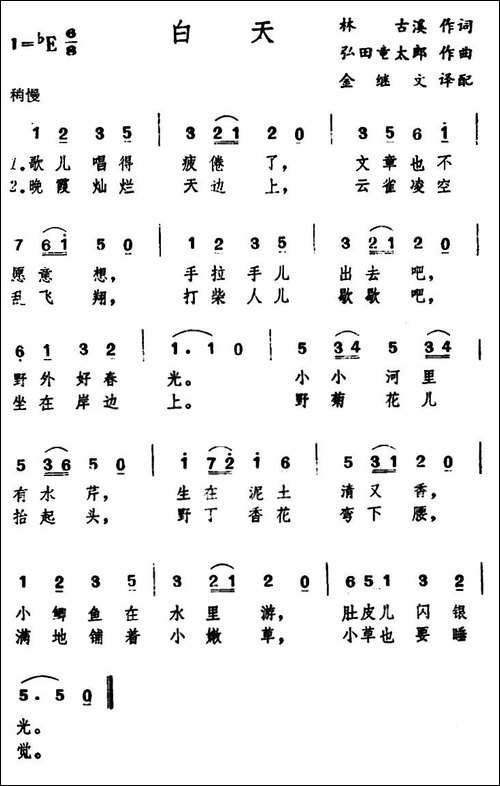 白天
林 古溪 作词
1=♭E 6/8
弘田竜太郎 作曲
金 继 文 译配
稍慢
1 2 3 5 | 3 21 2 0 | 3 5 6 i
1.歌儿唱得 疲倦了, 文章也不
2.晚霞灿烂 天边上, 云雀凌空
7 6i 5 0 | 1 2 3 5 | 3 21 2 0 |
愿意想, 手拉手儿 出去吧,
乱飞翔, 打柴人儿 歇歇吧,
6 1 3 2 | 1. 1 0 | 5 34 5 34 |
野外好春 光。 小小河里
坐在岸边 上。 野菊花儿
5 36 5 0 | i 72 i 6 | 5 31 2 0 |
有水芹, 生在泥土 清又香,
抬起头, 野丁香花 弯下腰,
1 2 3 5 | 3 21 2 0 | 6 5 1 3 2 |
小鲫鱼在 水里游, 肚皮儿闪银
满地铺着 小嫩草, 小草也要睡
5. 5 0
光。
觉。